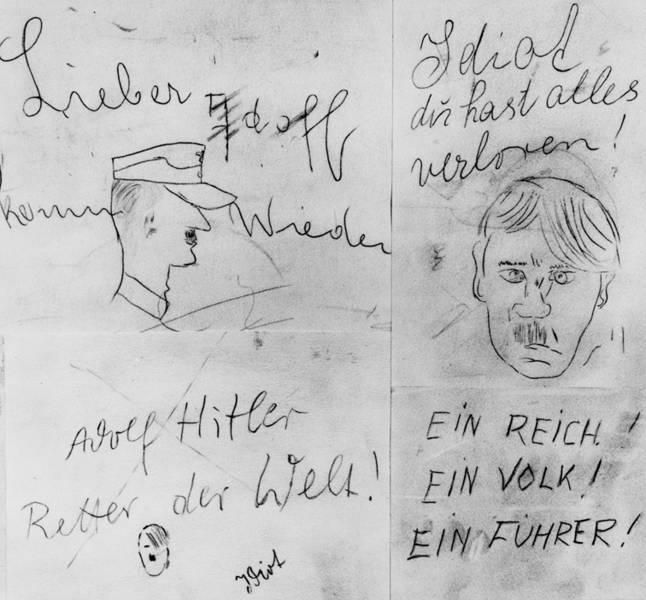 Lieber
Adolf
komm Wieder
Idiot
du hast alles
verloren!
Adolf Hitler
Retter der Welt!
Idiot
EIN REICH!
EIN VOLK!
EIN FÜHRER!